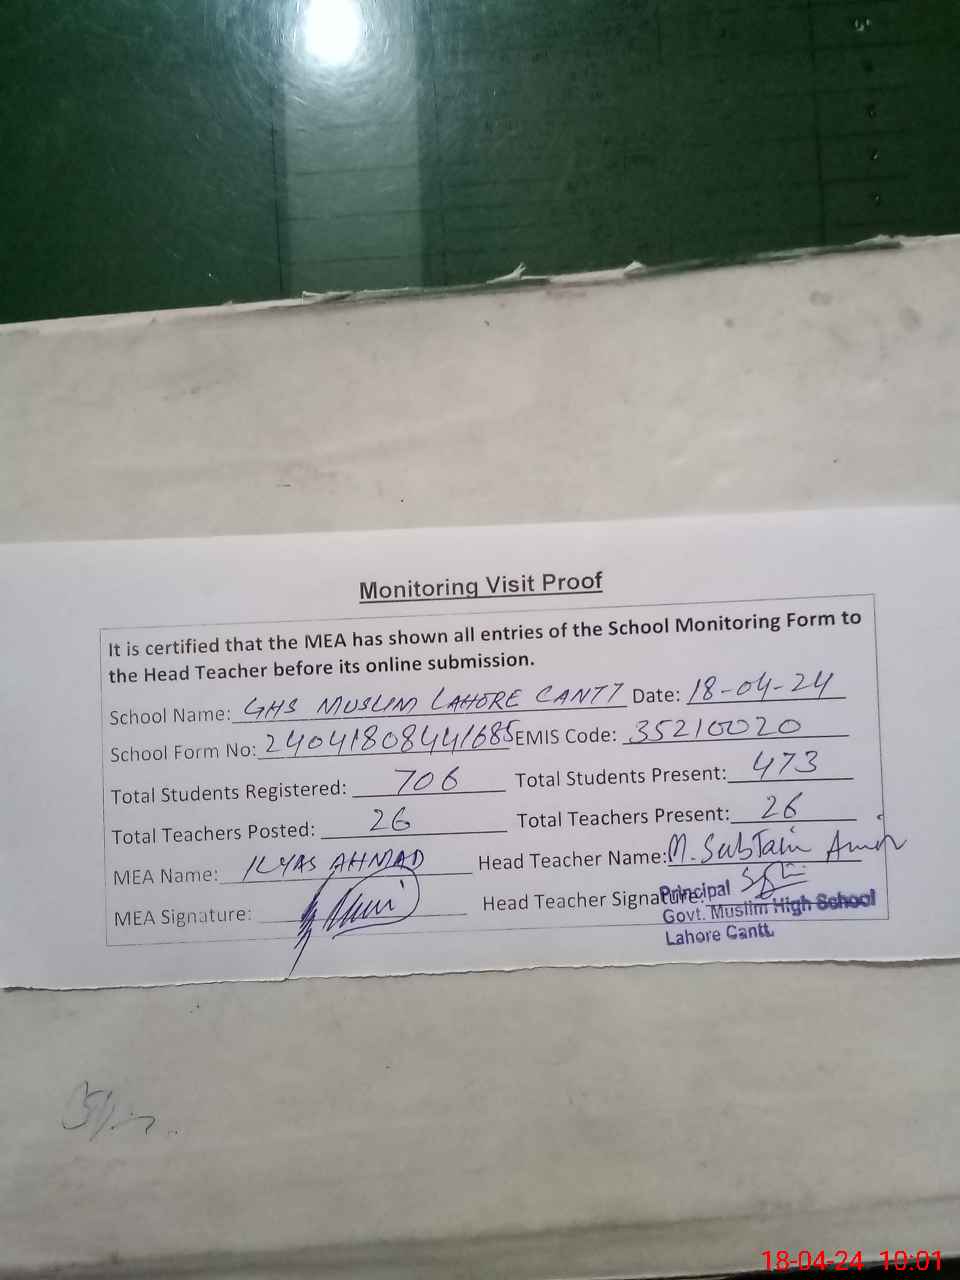 Monitoring Visit Proof
It is certified that the MEA has shown all entries of the School Monitoring Form to
the Head Teacher before its online submission.
School Name: GHS MUSLIM LAHORE CANTT Date: 18-04-24
School Form No: 24041808441685 EMIS Code: 35210020
Total Students Registered: 706 Total Students Present: 473
Total Teachers Posted: 26 Total Teachers Present: 26
MEA Name: ILYAS AHMAD Head Teacher Name: M. SubTain
MEA Signature: Head Teacher Signature:
Principal
Govt. Muslim High School
Lahore Cantt.
18-04-24 10:01